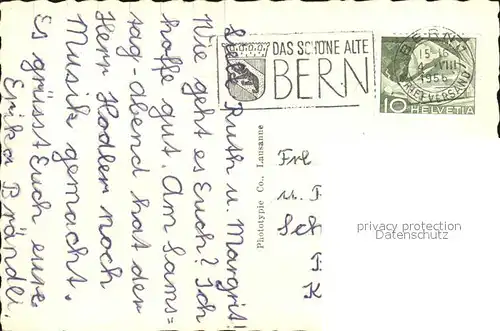 Liebe Ruth u. Margrit!
Wie geht es Euch? Ich
hoffe gut. Am Sams=
tag-abend hat der
Herr Hodler noch
Musik gemacht.
Es grüsst Euch eure
Erika Brändli.
DAS SCHÖNE ALTE
BERN
BERN 1
15-16
VIII
1956
BRIEFVERSAND
10 HELVETIA
Phototypie Co., Lausanne
Frl
u.
Sch
K
privacy protection
Datenschutz